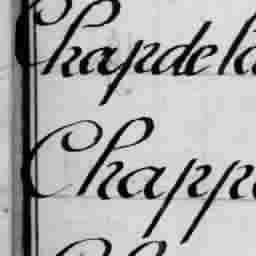 Chapdela
Chapp